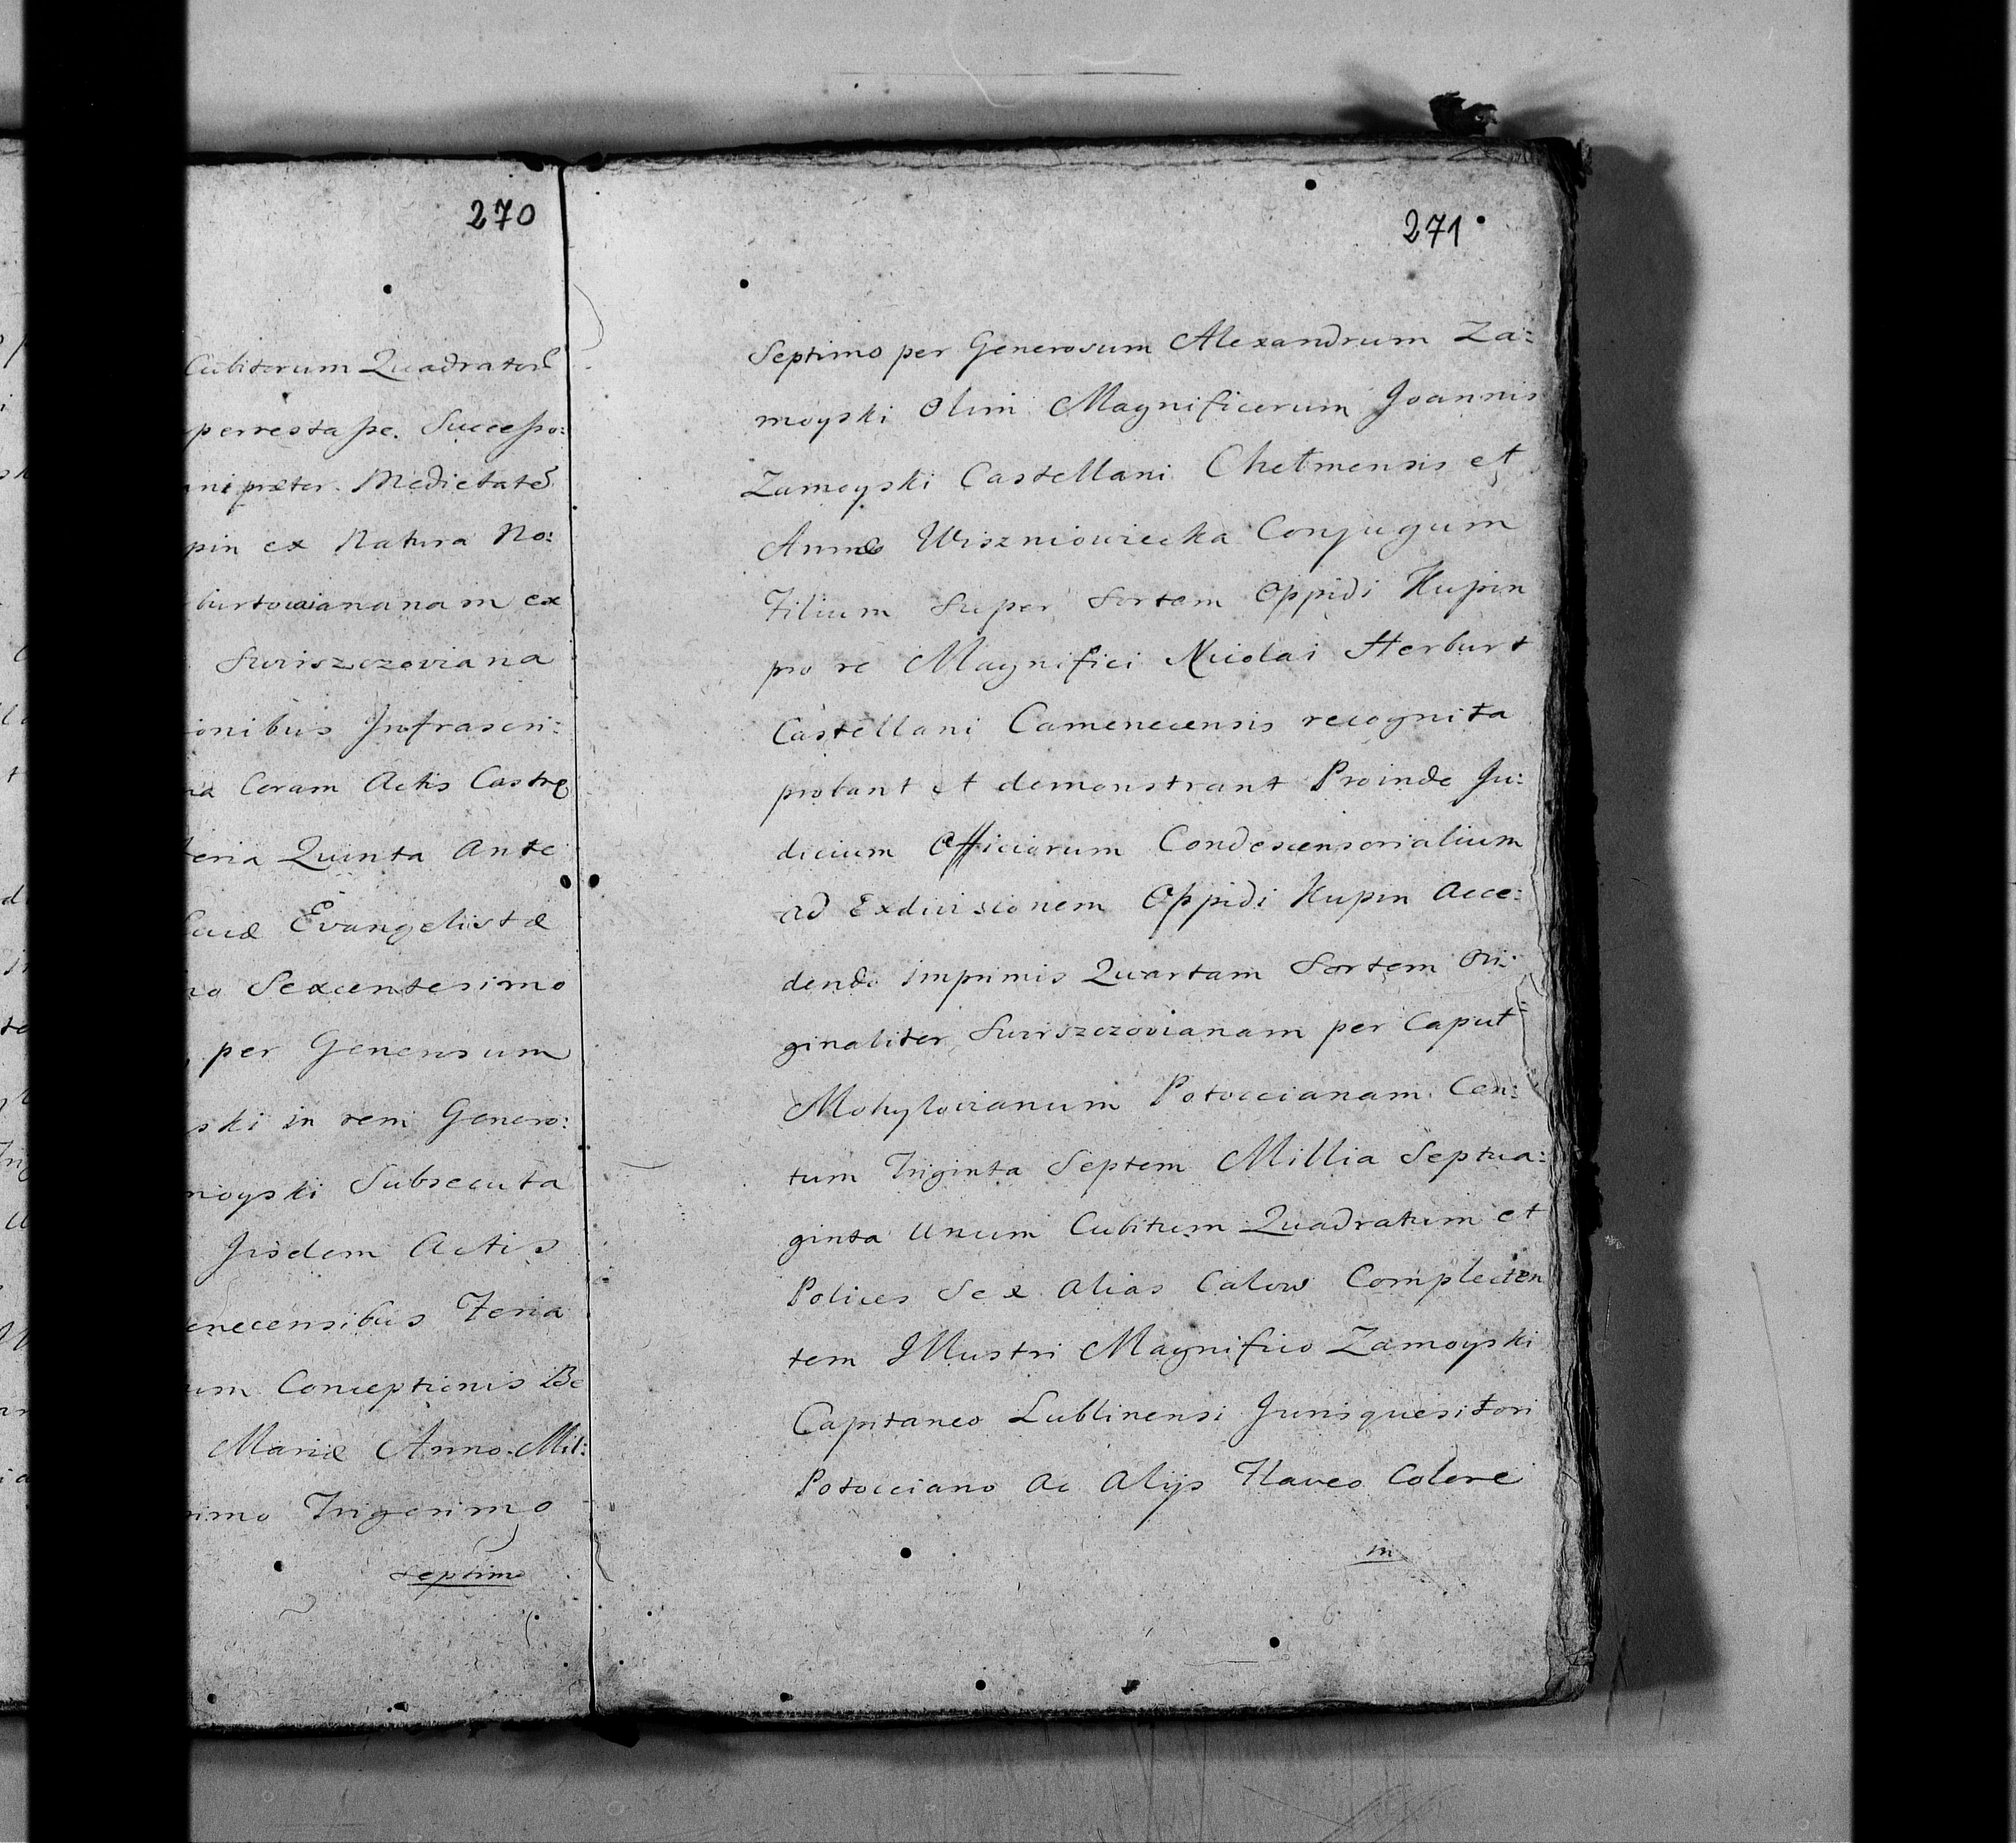 270
Cubitorum Quadratorũ
perresta se. Successo:
ni præter Medietatẽ
pin ex Natura No:
burtowiananam ex
Swiszczoviana
onibus Infrascri:
Coram Actis Castrẽ
eria Quinta Ante
Lucæ Evangelistæ
Sexcentesimo
per Generosum
ski in rem Genero:
moyski Subsecuta
Iisdem Actis
enecensibus Feria
um Conceptionis Be
Mariæ Anno Mil:
simo Trigesimo
septimo
271
Septimo per Generosum Alexandrum Za:
moyski Olim Magnificorum Joannis
Zamoyski Castellani Chełmensis et
Annæ Wiszniowiecka Conjugum
Filium Super Sortem Oppidi Kupin
pro re Magnifici Nicolai Herburt
Castellani Camenecensis recognita
probant et demonstrant Proinde Ju:
dicium Officiorum Condescensorialium
ad Exdivisionem Oppidi Kupin Acce:
dendo imprimis Quartam Sortem Ori:
ginaliter Swirszczovianam per Caput
Mohyłovianum Potoccianam Cen:
tum Triginta Septem Millia Septua:
ginta Unum Cubitum Quadratum et
Polices Sex alias Calow Complecten
tem Illustri Magnifico Zamoyski
Capitaneo Lublinensi Jurisquesitori
Potocciano Ac Alijs Flaveo Colore
in